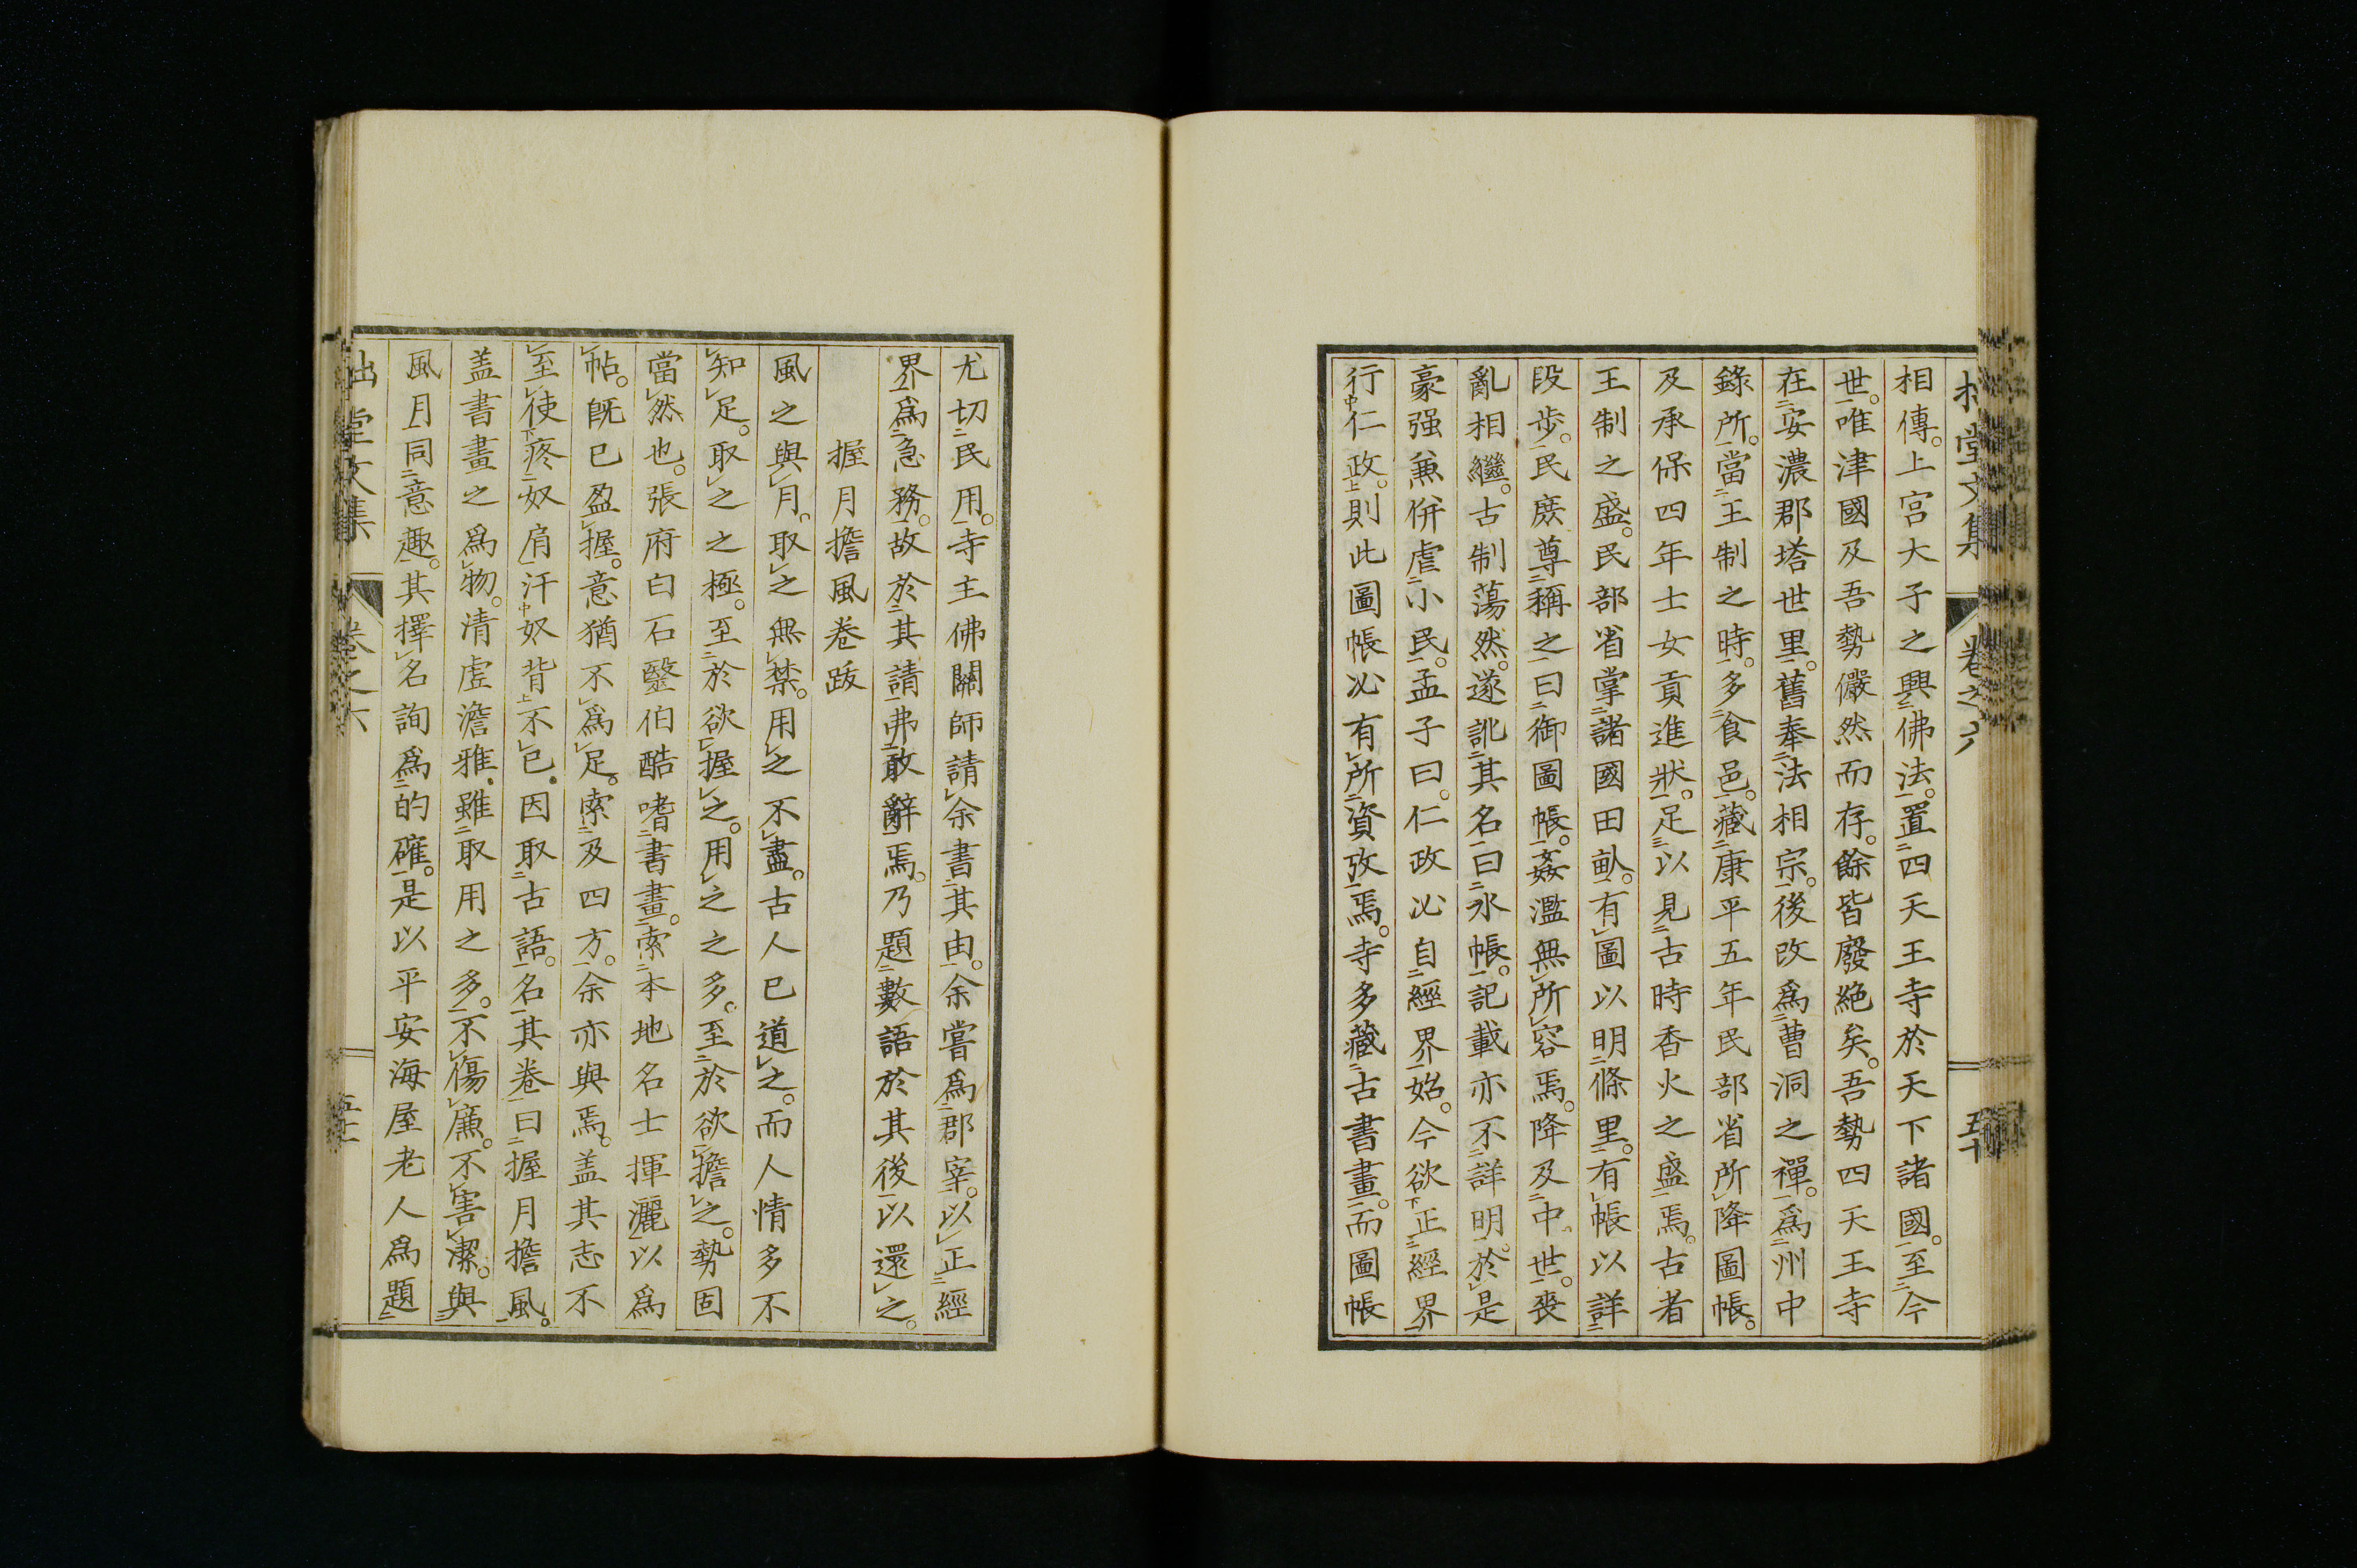 堂文集 卷之六 五十
相傳。上宮大子之興佛法。置四天王寺於天下諸國。至今
世。唯津國及吾勢儼然而存。餘皆廢絶矣。吾勢四天王寺
在安濃郡塔世里。舊奉法相宗。後改爲曹洞之禪。爲州中
錄所。當王制之時。多食邑。藏康平五年民部省所降圖帳。
及承保四年士女貢進狀。足以見古時香火之盛焉。古者
王制之盛。民部省掌諸國田畝。有圖以明條里。有帳以詳
段步。民庶尊稱之曰御圖帳。姦濫無所容焉。降及中世。喪
亂相繼。古制蕩然。遂訛其名曰水帳。記載亦不詳明。於是
豪强兼併虐小民。孟子曰。仁政必自經界始。今欲正經界
行仁政。則此圖帳必有所資攷焉。寺多藏古書畫。而圖帳
尤切民用。寺主佛關師請余書其由。余嘗爲郡宰。以正經
界爲急務。故於其請弗敢辭焉。乃題數語於其後以還之。
握月擔風卷跋
風之與月。取之無禁。用之不盡。古人已道之。而人情多不
知足。取之之極。至於欲握之。用之之多。至於欲擔之。勢固
當然也。張府白石毉伯酷嗜書畫。索本地名士揮灑以爲
帖。既已盈握。意猶不爲足。索及四方。余亦與焉。盖其志不
至使疼奴肩汗奴背不已。因取古語。名其卷曰握月擔風。
盖書畫之爲物。清虛澹雅。雖取用之多。不傷廉。不害潔。與
風月同意趣。其擇名詢爲的確。是以平安海屋老人爲題
拙堂文集 卷之六 五十